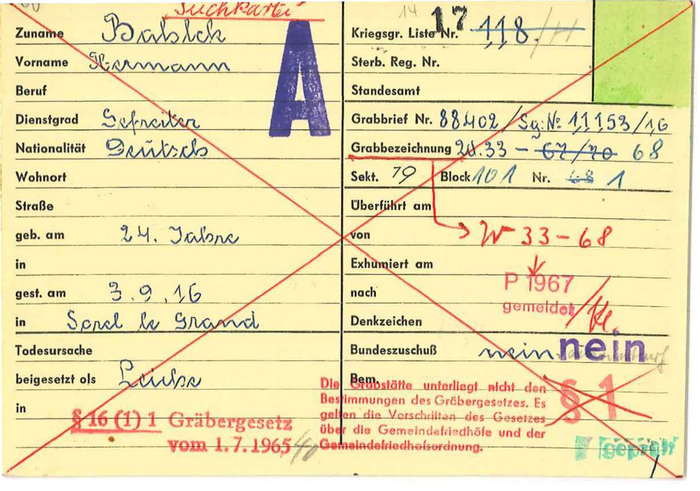 "Suchkartei"
Zuname Babick
Vorname Hermann
Beruf
Dienstgrad Gefreiter
Nationalität Deutsch
Wohnort
Straße
geb. am 24. Jahre
in
gest. am 3.9.16
in Sorel le Grand
Todesursache
beigesetzt als Leiche
in
§ 16 (1) 1 Gräbergesetz
vom 1.7.1965
A
14 17
Kriegsgr. Liste Nr. 118
Sterb. Reg. Nr.
Standesamt
Grabbrief Nr. 88402/Sg: No 11153/16
Grabbezeichnung 20.33 - 67/70 68
Sekt. 19 Block 101 Nr. 68 1
Überführt am
von W 33-68
Exhumiert am
P 1967
nach
gemeldet
Denkzeichen
Bundeszuschuß nein nein
Bem.
Die Grabstätte unterliegt nicht den
Bestimmungen des Gräbergesetzes. Es
gelten die Vorschriften des Gesetzes
über die Gemeindefriedhöfe und der
Gemeindefriedhofsordnung.
§ 1
geprüft